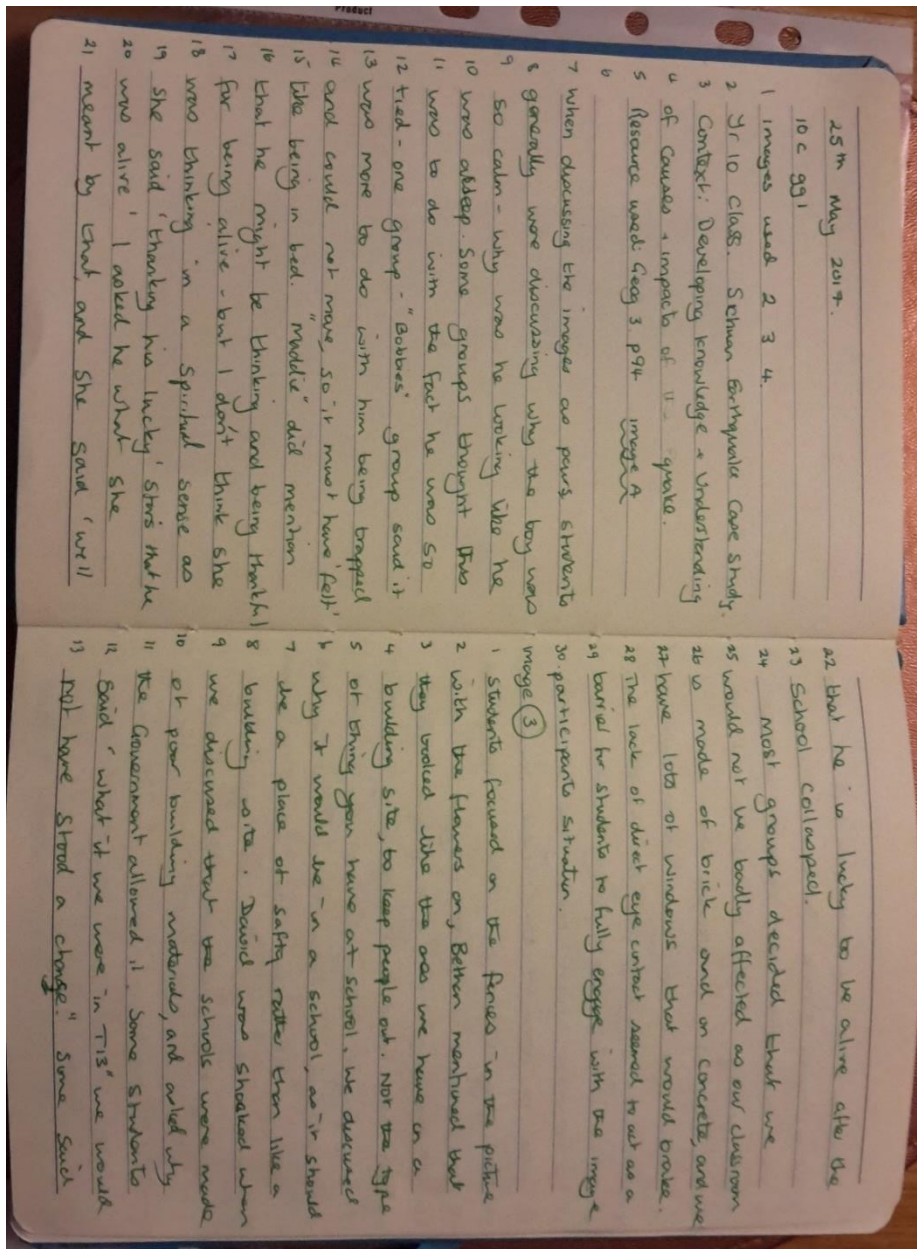 Product
25th May 2017.
10c gg1
1 images used 2 3 4.
2 Yr 10 Class. Sichuan Earthquake Case Study.
3 Context: Developing knowledge + Understanding
4 of Causes + impacts of " quake.
5 Resource used Geog 3 p94 image A
6
7 When discussing the images as pairs students
8 generally were discussing why the boy was
9 so calm - why was he looking like he
10 was asleep. Some groups thought this
11 was to do with the fact he was so
12 tied - one group - "Bobbies" group said it
13 was more to do with him being trapped
14 and could not move, so it must have 'felt'
15 like being in bed. "Maddie" did mention
16 that he might be thinking and being thankful
17 for being alive - but I don't think she
18 was thinking in a spiritual sense as
19 she said 'thanking his lucky' stars that he
20 was alive' I asked he what she
21 meant by that, and she said 'well
22 that he is lucky to be alive after the
23 School collasped.
24 most groups decided that we
25 would not be badly affected as our classroom
26 is made of brick and on concrete, and we
27 have lots of windows that would brake.
28 The lack of direct eye contact seemed to act as a
29 barrier for students to fully engage with the image
30. participants situation.
image 3
1 students focused on the fences in the picture
2 with the flowers on, Bethan mentioned that
3 they looked like the ones we have in a
4 building site, to keep people out. Not the type
5 of thing you have at school. We discused
6 why it would be in a school, as it should
7 be a place of safty rather than like a
8 building site. David was shocked when
9 we discused that the schools were made
10 of poor building materials, and asked why
11 the Government allowed it. Some Students
12 said "what if we were in T13" we would
13 not have stood a change." Some said